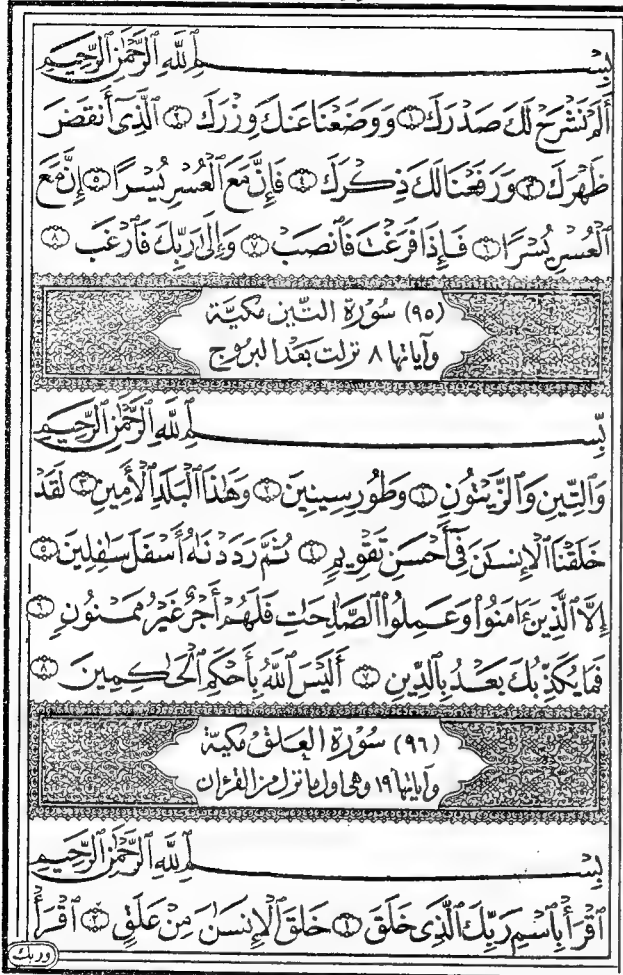 بِسْمِ ٱللَّهِ ٱلرَّحْمَٰنِ ٱلرَّحِيمِ
أَلَمْ نَشْرَحْ لَكَ صَدْرَكَ ١ وَوَضَعْنَا عَنكَ وِزْرَكَ ٢ ٱلَّذِىٓ أَنقَضَ
ظَهْرَكَ ٣ وَرَفَعْنَا لَكَ ذِكْرَكَ ٤ فَإِنَّ مَعَ ٱلْعُسْرِ يُسْرًا ٥ إِنَّ مَعَ
ٱلْعُسْرِ يُسْرًا ٦ فَإِذَا فَرَغْتَ فَٱنصَبْ ٧ وَإِلَىٰ رَبِّكَ فَٱرْغَب ٨
(٩٥) سُورَة التِّين مَكيَّة
وآياتها ٨ نزلت بَعْد البروج
بِسْمِ ٱللَّهِ ٱلرَّحْمَٰنِ ٱلرَّحِيمِ
وَٱلتِّينِ وَٱلزَّيْتُونِ ١ وَطُورِ سِينِينَ ٢ وَهَٰذَا ٱلْبَلَدِ ٱلْأَمِينِ ٣ لَقَدْ
خَلَقْنَا ٱلْإِنسَٰنَ فِىٓ أَحْسَنِ تَقْوِيمٍ ٤ ثُمَّ رَدَدْنَٰهُ أَسْفَلَ سَٰفِلِينَ ٥
إِلَّا ٱلَّذِينَ ءَامَنُوا۟ وَعَمِلُوا۟ ٱلصَّٰلِحَٰتِ فَلَهُمْ أَجْرٌ غَيْرُ مَمْنُونٍ ٦
فَمَا يُكَذِّبُكَ بَعْدُ بِٱلدِّينِ ٧ أَلَيْسَ ٱللَّهُ بِأَحْكَمِ ٱلْحَٰكِمِينَ ٨
(٩٦) سُورَة العَلق مَكيَّة
وآياتها ١٩ وهى اول ما نزل من القرآن
بِسْمِ ٱللَّهِ ٱلرَّحْمَٰنِ ٱلرَّحِيمِ
ٱقْرَأْ بِٱسْمِ رَبِّكَ ٱلَّذِى خَلَقَ ١ خَلَقَ ٱلْإِنسَٰنَ مِنْ عَلَقٍ ٢ ٱقْرَأْ
وربك